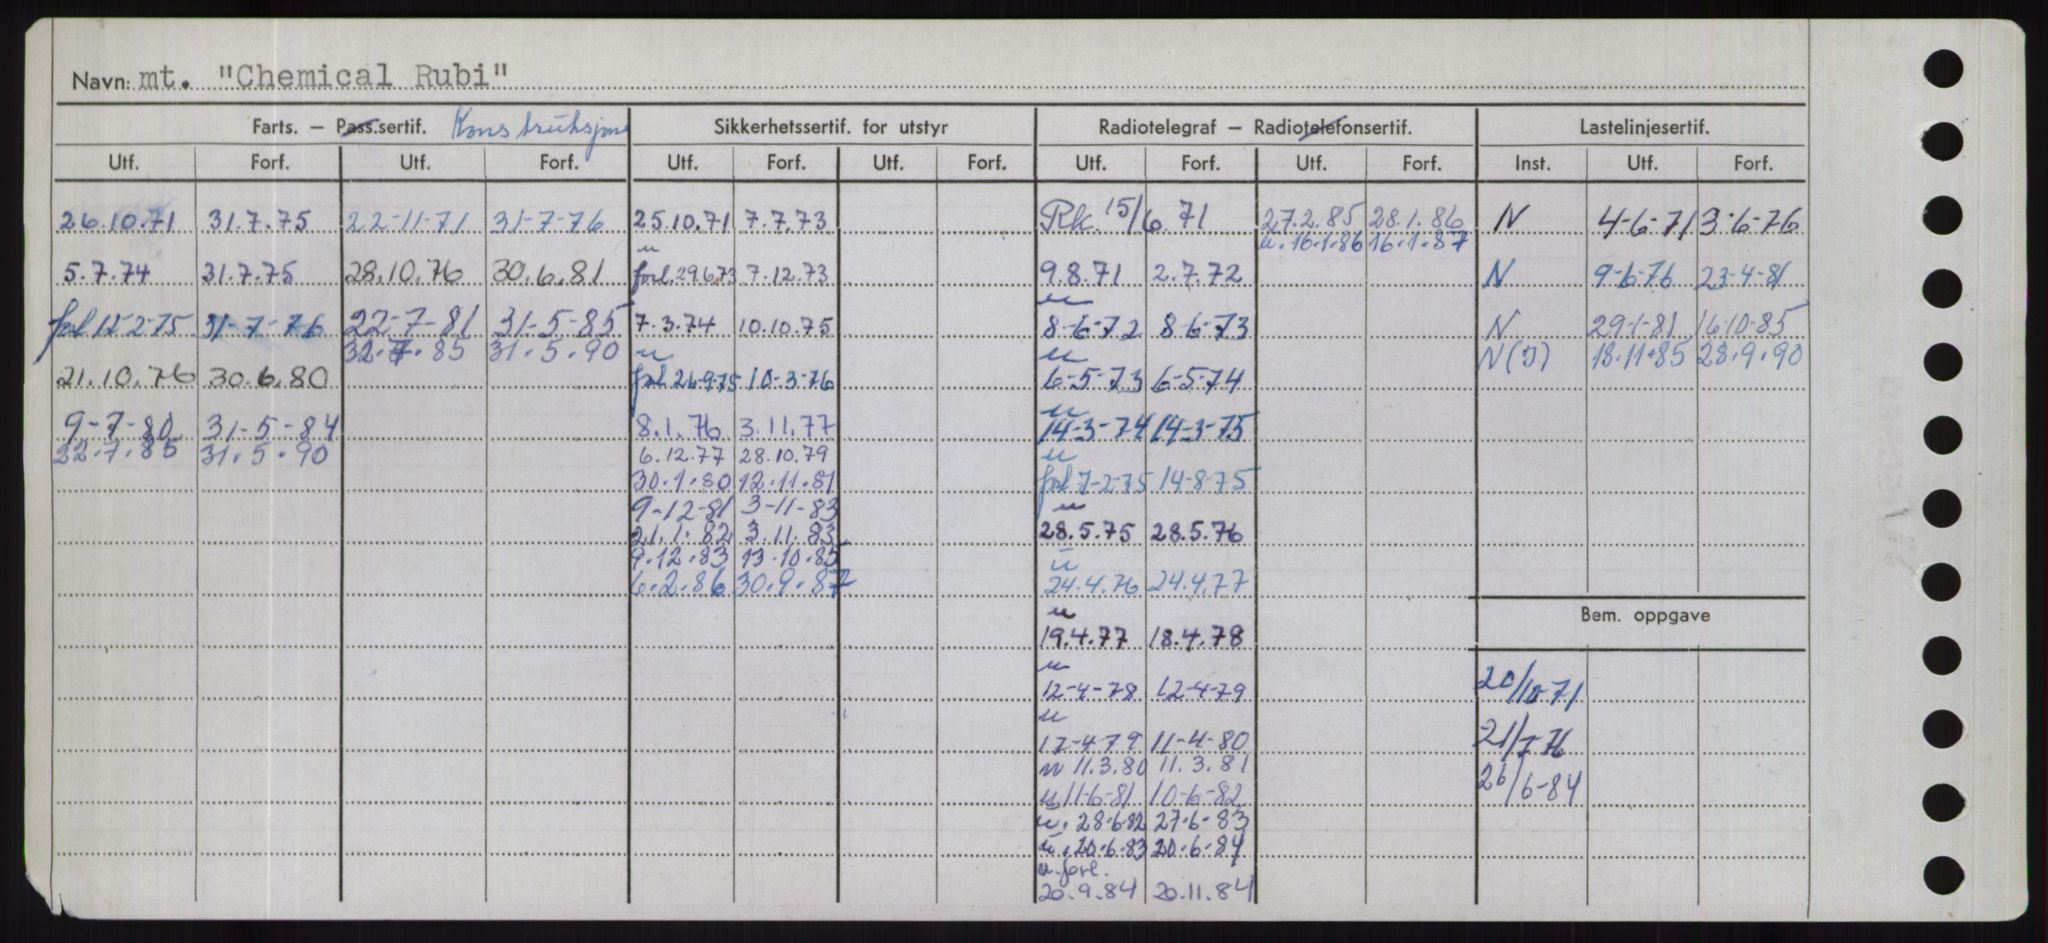 Navn: mt. "Chemical Rubi"
Farts. – Pass.sertif. Konstruksjons
Sikkerhetssertif. for utstyr
Radiotelegraf – Radiotelefonsertif.
Lastelinjesertif.
Utf. Forf. Utf. Forf. Utf. Forf. Utf. Forf. Utf. Forf. Utf. Forf. Inst. Utf. Forf.
26.10.71 31.7.75 22-11-71 31-7-76 25.10.71 7.7.73 Rk. 15/6.71 27.2.85 28.1.86 N 4-6-71 3-6-76
u u. 16.1.86 16.1.87
5.7.74 31.7.75 28.10.76 30.6.81 forl. 29.6.73 7.12.73 9.8.71 2.7.72 N 9-6-76 23-4-81
u
forl 12-2-75 31-7-76 22-7-81 31-5-85 7.3.74 10.10.75 8-6-72 8-6-73 N 29-1-81 16-10-85
32.7.85 31.5.90 u u N(J) 18.11.85 28.9.90
21.10.76 30.6.80 forl 26-9-75 10-3-76 6-5-73 6-5-74
u
9-7-80 31-5-84 8.1.76 3.11.77 14-3-74 14-3-75
22.7.85 31.5.90 6.12.77 28.10.79 u
30.1.80 12.11.81 forl 7-2-75 14-8-75
9-12-81 3-11-83 u
21.1.82 3.11.83 28.5.75 28.5.76
9.12.83 13.10.85 u
6.2.86 30.9.87 24.4.76 24.4.77
u
Bem. oppgave
19.4.77 18.4.78
u
12-4-78 12-4-79 20/10-71
u
17-4-79 11-4-80 21/7-76
u 11.3.80 11.3.81
u 11-6-81 10-6-82 26/6-84
u. 28.6.82 27.6.83
u. 20.6.83 20.6.84
u. forl.
20.9.84 20.11.84